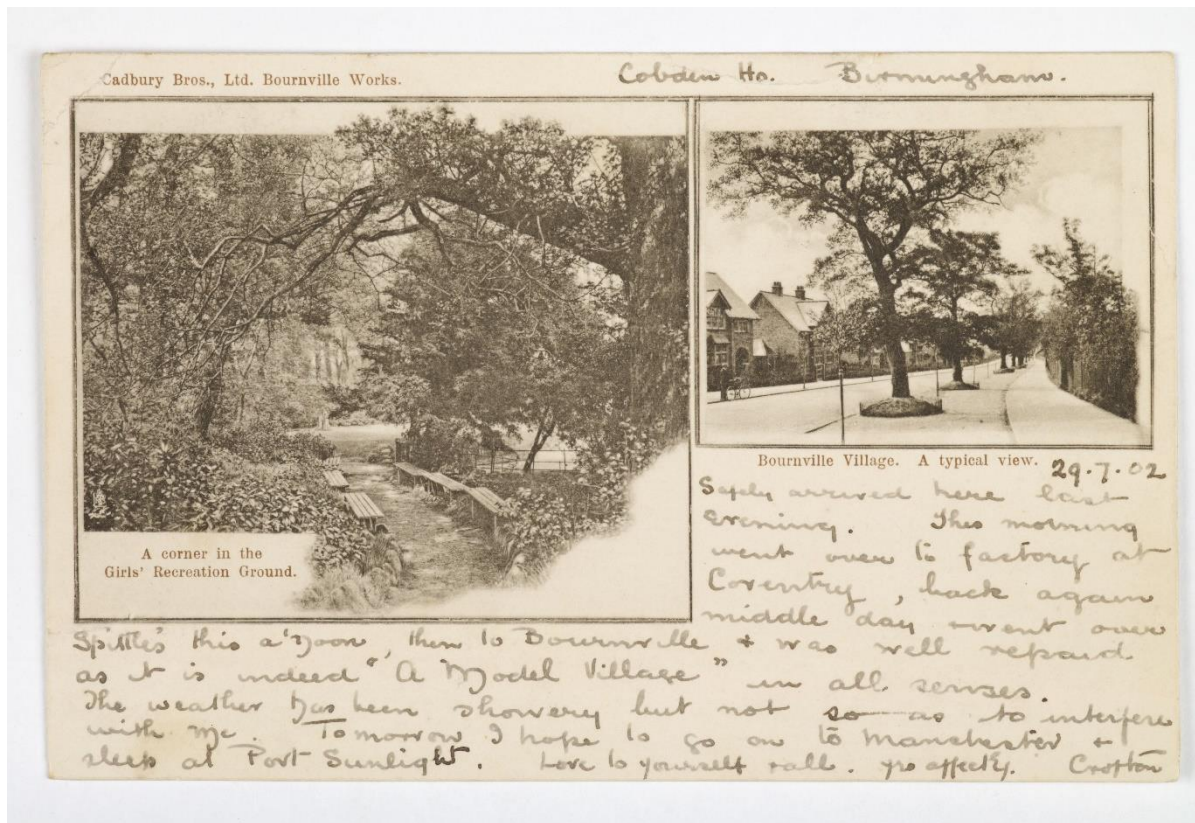 Cadbury Bros., Ltd. Bournville Works.
Cobden Ho. Birmingham.
A corner in the
Girls' Recreation Ground.
Bournville Village. A typical view.
29.7.02
Safely arrived here last
evening. This morning
went over to factory at
Coventry, back again
middle day & went over
Spittle's this a'noon, then to Bournville & was well repaid
as it is indeed "A Model Village" in all senses.
The weather has been showery but not so as to interfere
with me. Tomorrow I hope to go on to Manchester &
sleep at Port Sunlight. Love to yourself & all. Yrs affectly. Crofton